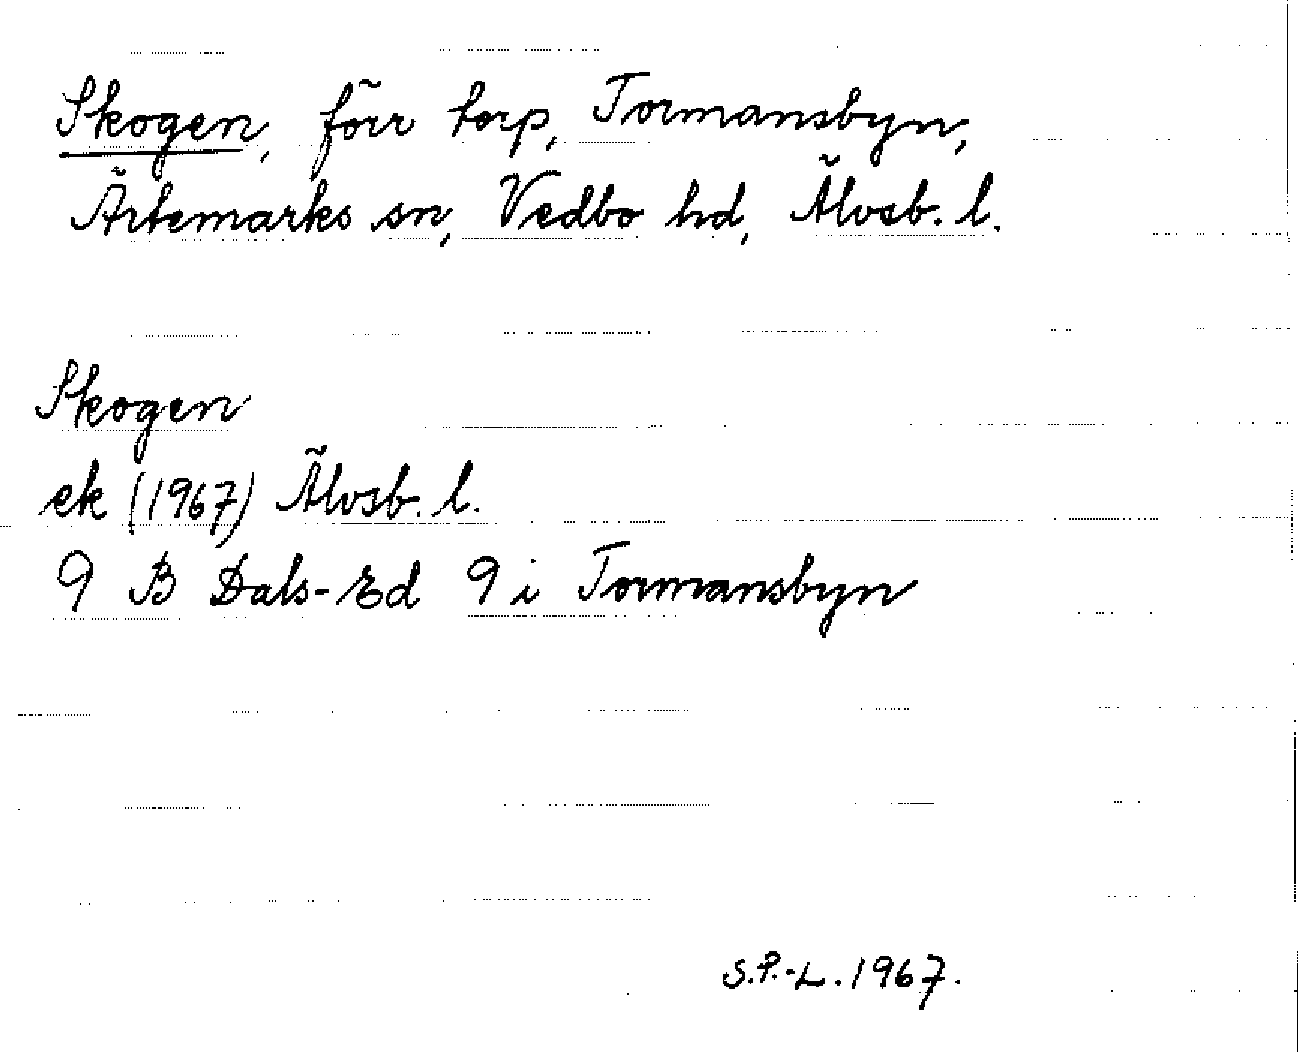 Skogen, förr torp, Tormansbyn,
Ärtemarks sn, Vedbo hd, Älvsb. l.
Skogen
ek (1967) Älvsb. l.
9 B Dals-Ed 9 i Tormansbyn
S.P.-L. 1967.